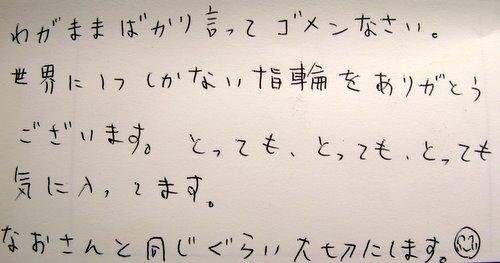 わがままばかり言ってゴメンなさい。
世界に1つしかない指輪をありがとう
ございます。とっても、とっても、とっても
気に入ってます。
なおさんと同じぐらい大切にします。